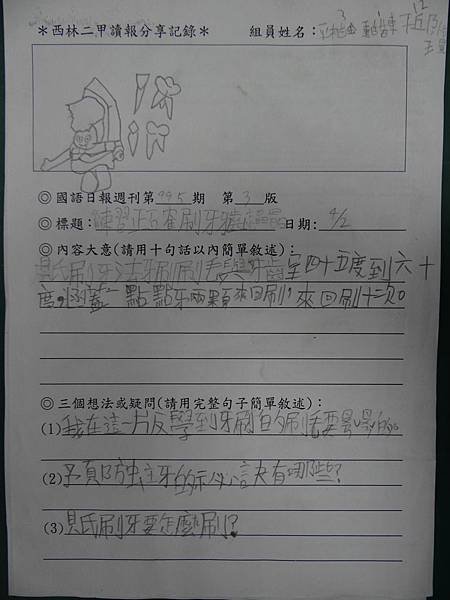 ＊西林二甲讀報分享記錄＊ 組員姓名：
◎國語日報週刊第 995 期 第 3 版
◎標題：練習正確刷牙 日期：4/2
◎內容大意(請用十句話以內簡單敘述)：
貝氏刷牙法牙刷刷毛與牙齒呈四十五度到六十
度，涵蓋一點點牙 兩顆來回刷，來回刷十次。
◎三個想法或疑問(請用完整句子簡單敘述)：
(1)我在這一片反學到牙刷的刷毛要
(2)預防蛀牙的祕訣有哪些？
(3)貝氏刷牙要怎麼刷？